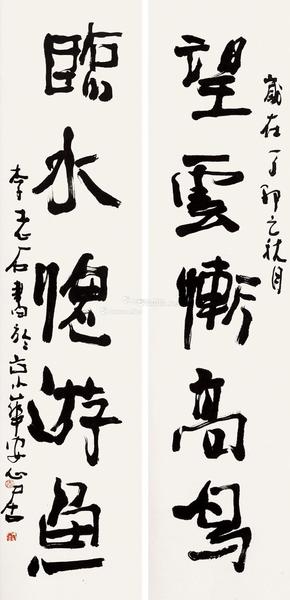 歲在丁卯之秋月
望雲慚高鳥
臨水愧游魚
李老石書於華安心居